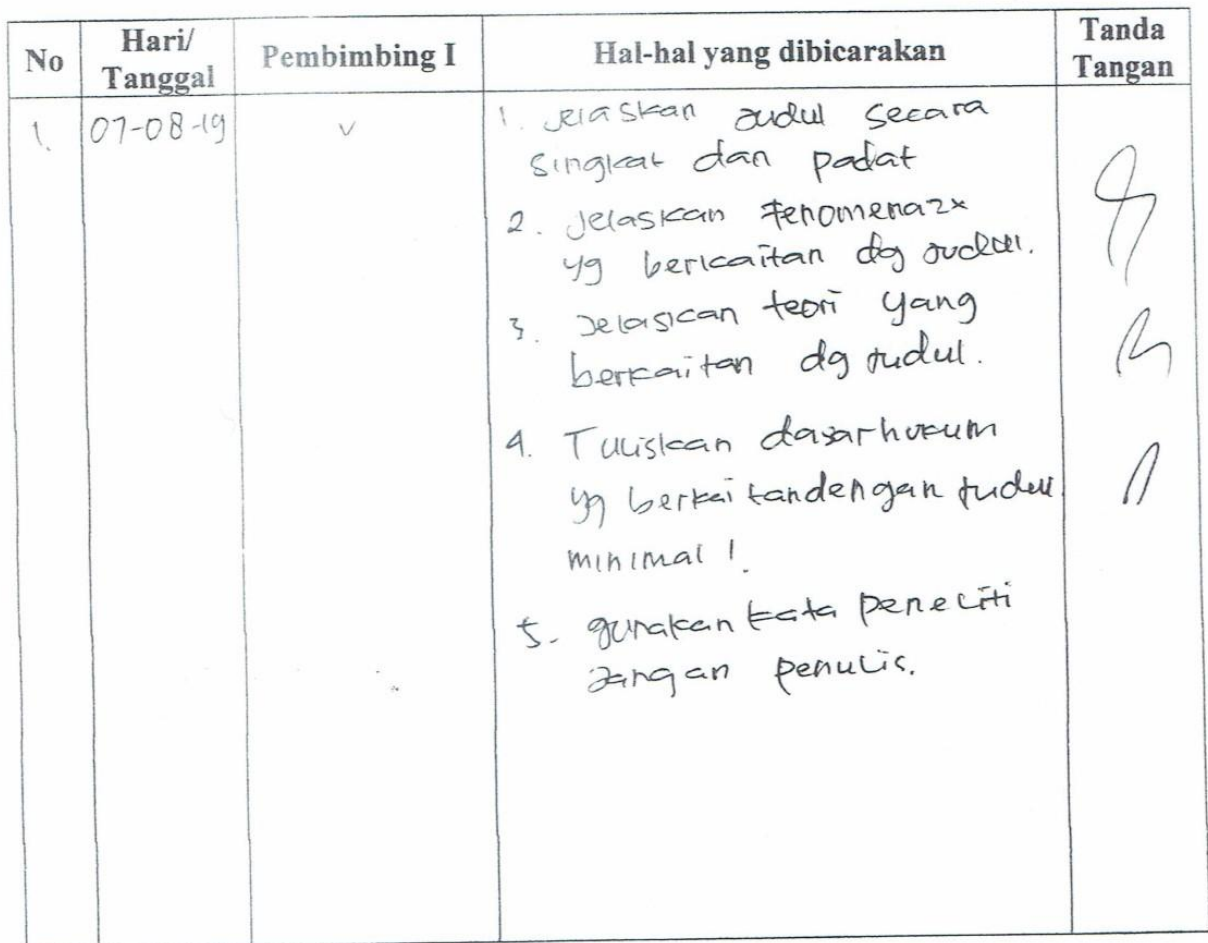 No Hari/ Tanggal Pembimbing I Hal-hal yang dibicarakan Tanda Tangan
1. 07-08-19 v 1. Jelaskan Judul secara
singkat dan padat
2. Jelaskan Fenomena2x
yg berkaitan dg Judul.
3. Jelaskan teori yang
berkaitan dg Judul.
4. Tuliskan dasar hukum
yg berkaitan dengan Judul
minimal 1.
5. gunakan kata peneliti
Jangan penulis.